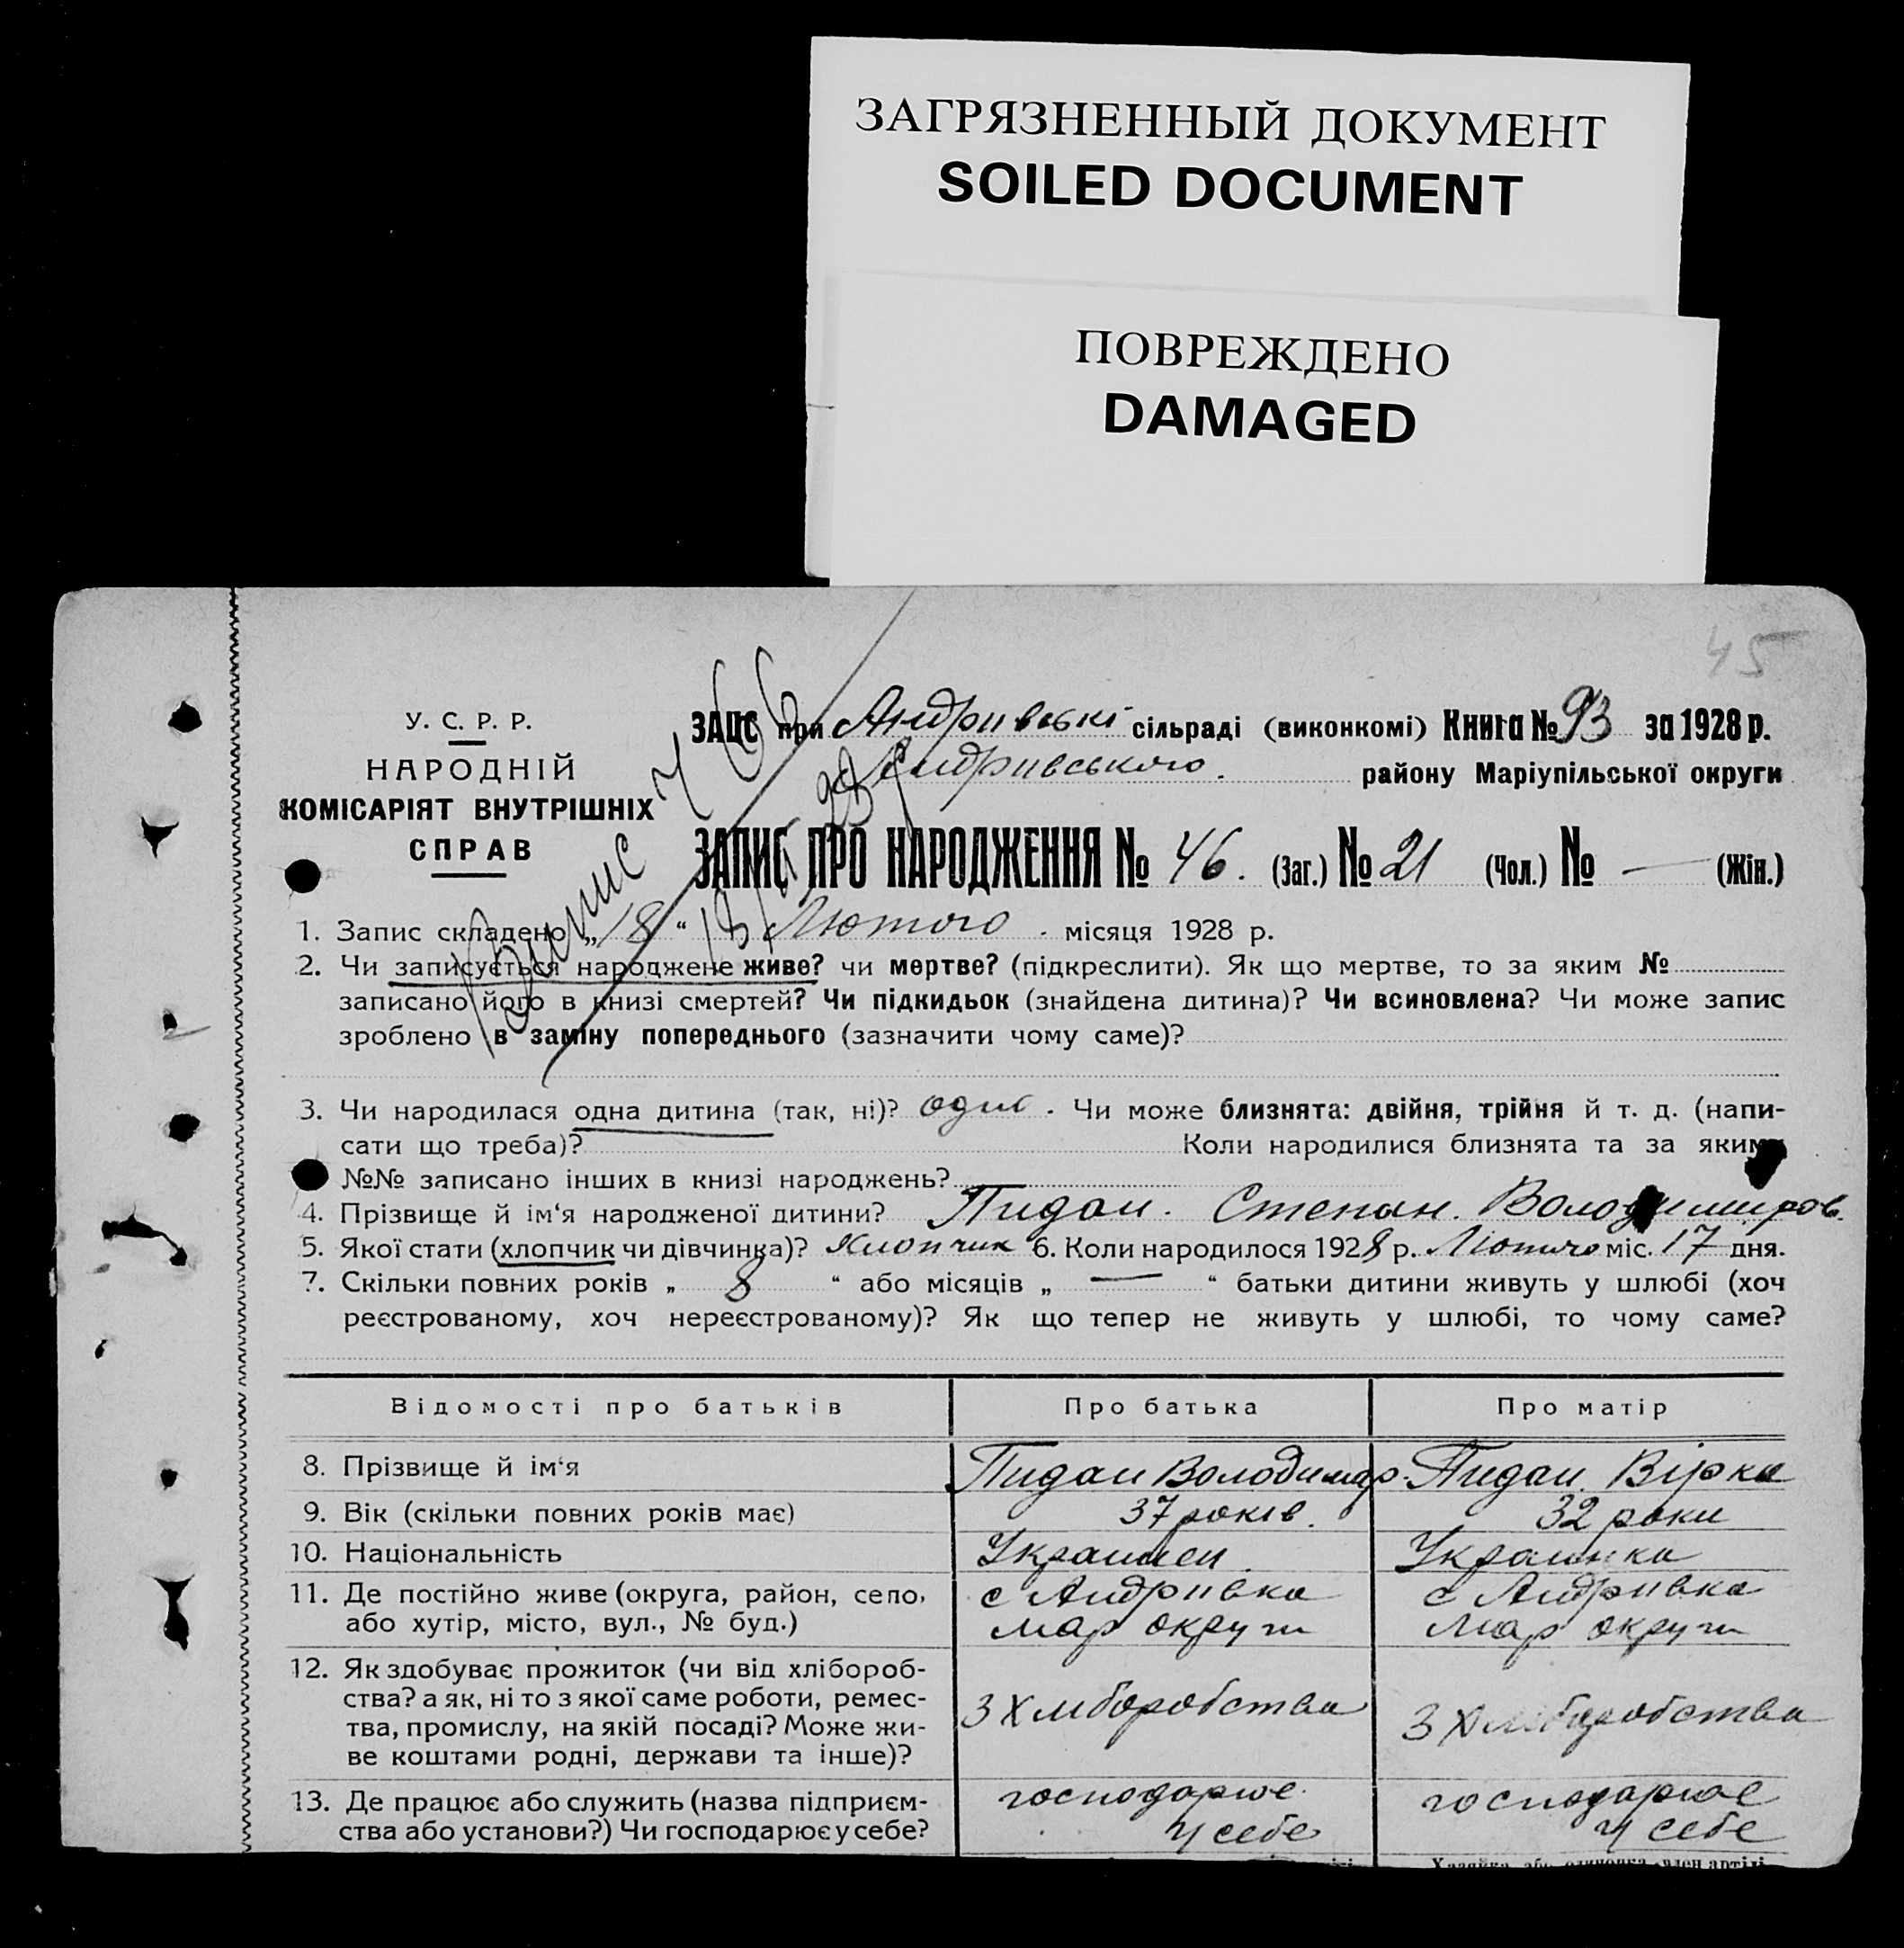 ЗАГРЯЗНЕННЫЙ ДОКУМЕНТ
SOILED DOCUMENT
ПОВРЕЖДЕНО
DAMAGED
45
У. С. Р. Р.
НАРОДНІЙ
КОМІСАРІЯТ ВНУТРІШНІХ
СПРАВ
ЗАЦС при Андривські сільраді (виконкомі) Книга № 93 за 1928 р.
Андривського району Маріупільської округи
ЗАПИС ПРО НАРОДЖЕННЯ № 46. (Заг.) № 21 (Чол.) № — (Жін.)
1. Запис складено „18“ Лютого місяця 1928 р.
2. Чи записується народжене живе? чи мертве? (підкреслити). Як що мертве, то за яким №
записано його в книзі смертей? Чи підкидьок (знайдена дитина)? Чи всиновлена? Чи може запис
зроблено в заміну попереднього (зазначити чому саме)?
3. Чи народилася одна дитина (так, ні)? Чи може близнята: двійня, трійня й т. д. (напи-
сати що треба)? Коли народилися близнята та за якими
№№ записано інших в книзі народжень?
4. Прізвище й ім‘я народженої дитини? Пидан. Степан. Володимиров.
5. Якої стати (хлопчик чи дівчинка)? Хлопчик 6. Коли народилося 1928 р. Лютого міс. 17 дня.
7. Скільки повних років „ 8 “ або місяців „ — “ батьки дитини живуть у шлюбі (хоч
реєстрованому, хоч нереєстрованому)? Як що тепер не живуть у шлюбі, то чому саме?
Відомості про батьків Про батька Про матір
8. Прізвище й ім‘я Пидан Володимир. Пидан. Вірка
9. Вік (скільки повних років має) 37 років. 32 роки
10. Національність Украинец Украинка
11. Де постійно живе (округа, район, село, с Андривка с Андривка
або хутір, місто, вул., № буд.) мар округи мар округи
12. Як здобуває прожиток (чи від хлібороб-
ства? а як, ні то з якої саме роботи, ремес-
тва, промислу, на якій посаді? Може жи-
ве коштами родні, держави та інше)? З Хлиборобства З Хлиборобства
13. Де працює або служить (назва підприєм- господарює господарює
ства або установи?) Чи господарює у себе? у себе у себе